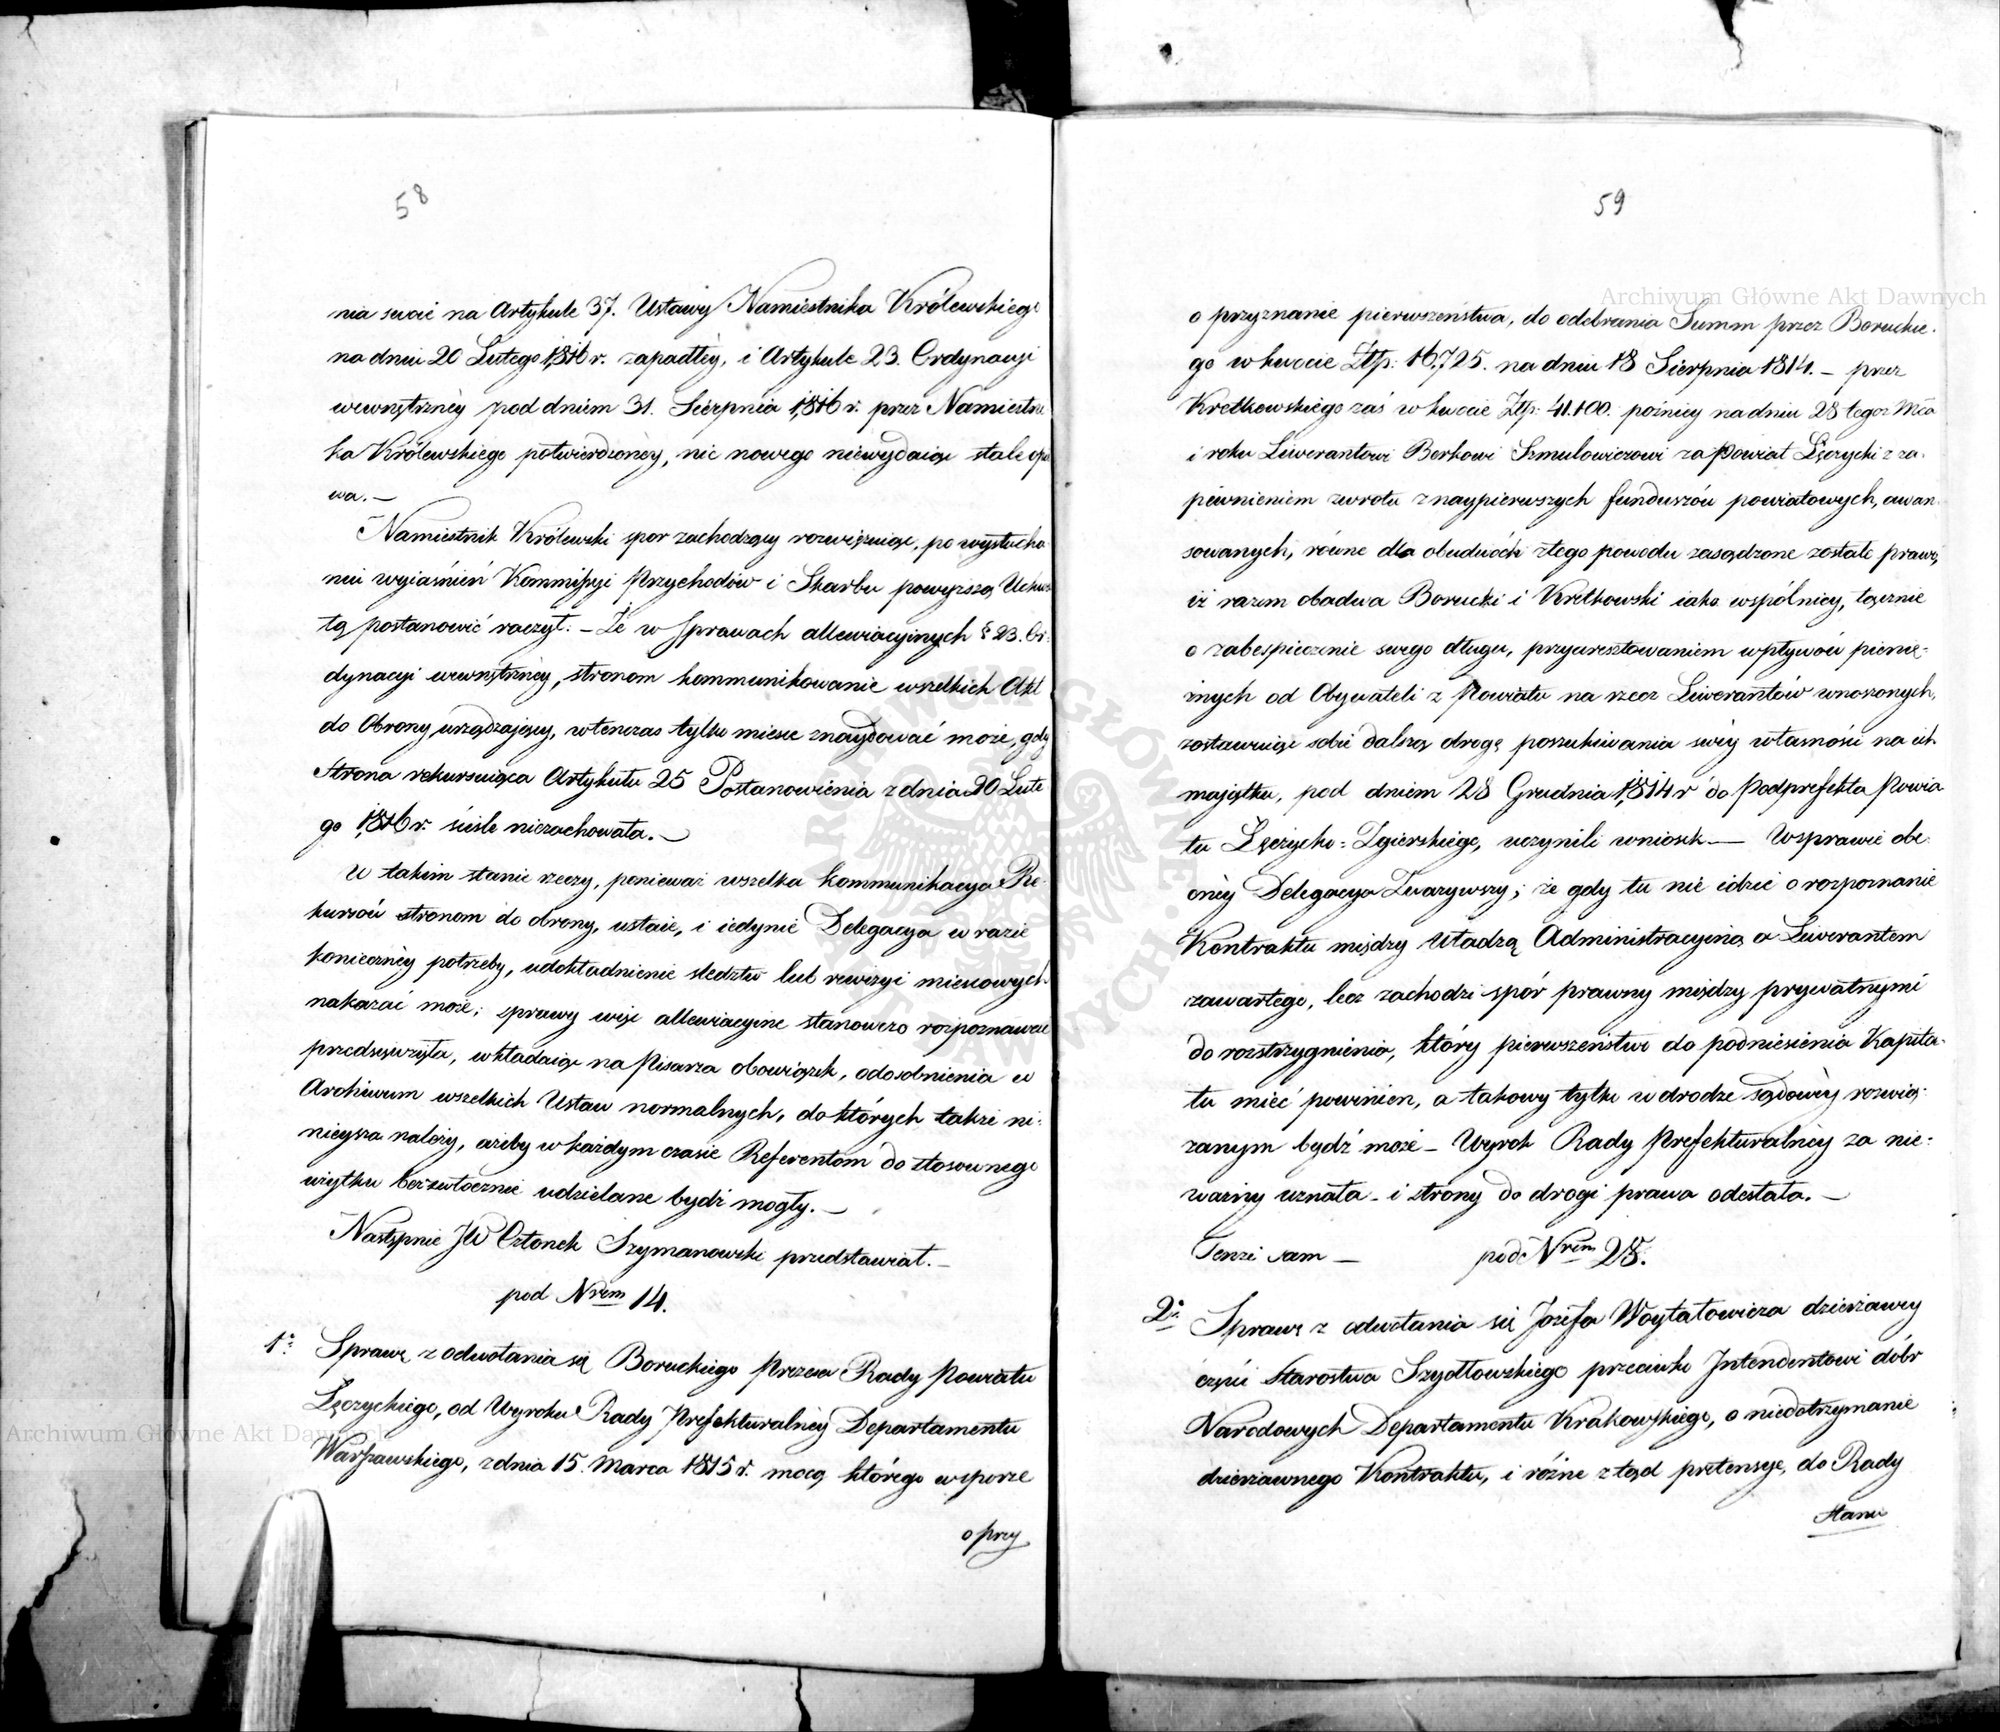 58
nia swoie na Artykule 37. Ustawy Namiestnika Królewskiego
na dniu 20 Lutego 1816 r. zapadłéy, i Artykule 23. Ordynacyi
wewnętrznéy pod dniem 31. Sierpnia 1816 r. przez Namiestni
ka Królewskiego potwierdzonéy, nic nowego niewydaiąc stale opi
wa. —
Namiestnik Królewski spor zachodzący rozwięzuiąc, po wysłucha
niu wyiaśnień Kommissyi Przychodów i Skarbu powyższą Uchwa
łą postanowić raczył: — Że w sprawach allewiacyinych § 23. Or:
dynacyi wewnętrznéy, stronom kommunikowanie wszelkich Akt
do Obrony urządzaiący, wtenczas tylko miesce znaydować może, gdy
Strona rekursuiąca Artykułu 25 Postanowienia z dnia 20 Lute
go 1816 r. ściśle niezachowała. —
W takim stanie rzeczy, ponieważ wszelka kommunikacya Re-
kursów stronom do obrony, ustaie, i iedynie Delegacya w razie
koniecznéy potrzeby, udokładnienie sledztw lub rewizyi miescowych
nakazać może; sprawy więc allewiacyine stanowczo rozpoznawać
przedsięwzięła, wkładaiąc na Pisarza obowiązek, odosobnienia w
Archiwum wszelkich Ustaw normalnych, do których także ni:
nieysza należy, ażeby w każdym czasie Referentom do stosownego
użytku bezzwłocznie udzielane bydź mogły. —
Następnie JW Członek Szymanowski przedstawiał. —
pod Nrem 14.
1° Sprawę z odwołania się Boruckiego Prezesa Rady Powiatu
Łęczyckiego, od Wyroku Rady Prefekturalnéy Departamentu
Warszawskiego, z dnia 15. Marca 1815 r. mocą którego w sporze
o przy
59
o przyznanie pierwszeństwa, do odebrania Summ przez Boruckie.
go w kwocie Złp: 16,725. na dniu 18 Sierpnia 1814. — przez
Kretkowskiego zaś w kwocie Złp: 41.100. pożniey na dniu 28 tegoż Mca
i roku Liwerantowi Berkowi Szmulowiczowi za Powiat Łęczycki z za.
pewnieniem zwrotu z naypierwszych funduszów powiatowych, awan.
sowanych, równe dla obudwóch z tego powodu zasądzone zostało prawo,
iż razem obadwa Borucki i Kretkowski iako wspólnicy, łącznie
o zabespieczenie swego długu, przyaresztowaniem wpływów pienię-
żnych od Obywateli z Powiatu na rzecz Liwerantów wnoszonych,
zostawuiąc sobie dalszą drogę poszukiwania swéy własności na ich
majątku, pod dniem 28 Grudnia 1814 r do Podprefekta Powia
tu Łęczycko-Zgierskiego, uczynili wniosek — W sprawie obe:
cnéy Delegacya Zważywszy; że gdy tu nie idzie o rozpoznanie
Kontraktu między Władzą Administracyiną a Liwerantem
zawartego, lecz zachodzi spór prawny między prywatnymi
do rozstrzygnienia, który pierwszeństwo do podniesienia Kapita-
łu mieć powinien, a takowy tylko w drodze sądowéy rozwią:
zanym bydź może — Wyrok Rady Prefekturalnéy za nie:
ważny uznała — i strony do drogi prawa odesłała. —
Tenże sam — pod Nrem 25.
2° Sprawę z odwołania się Józefa Woytałowicza dzierżawcy
części Starostwa Szydłowskiego przeciwko Intendentowi dóbr
Narodowych Departamentu Krakowskiego, o niedotrzymanie
dzierżawnego Kontraktu, i różne ztąd pretensye, do Rady
Stanu
Archiwum Główne Akt Dawnych
Archiwum Główne Akt Dawnych
ARCHIWUM GŁÓWNE AKT DAWNYCH